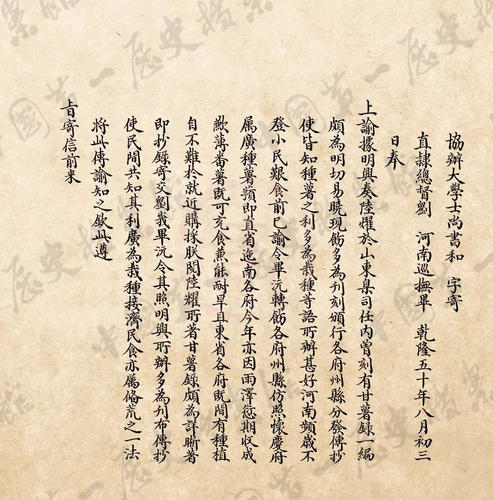 協辦大學士尚書和 字寄
直隸總督劉 河南巡撫畢 乾隆五十年八月初三
日奉
上諭據明興奏陸燿於山東臬司任內曾刻有甘薯錄一編
頗為明切易曉現飭多為刊刻頒行各府州縣分發傳抄
使皆知種薯之利多為栽種等語所辦甚好河南頻歲不
登小民艱食前已諭令畢沅轉飭各府州縣仿照懷慶府
屬廣種薯蕷即直省迤南各府今年亦因雨澤愆期收成
歉薄番薯既可充食兼能耐旱且東省各府既間有種植
自不難於就近購採朕閱陸燿所著甘薯錄頗為詳晰著
即抄錄寄交劉峩畢沅令其照明興所辦多為刊布傳抄
使民間共知其利廣為栽種接濟民食亦屬備荒之一法
將此傳諭知之欽此遵
旨寄信前來
國第一歷史檔案